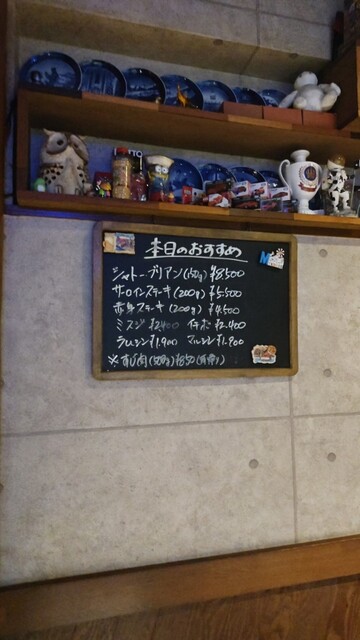 本日のおすすめ
シャトーブリアン(150g) ¥8,500
サーロインステーキ(200g) ¥5,500
赤身ステーキ(200g) ¥4,500
ミスジ ¥2,400 イチボ ¥2,400
ラムシン ¥1,900 マルシン ¥1,900
※すじ肉